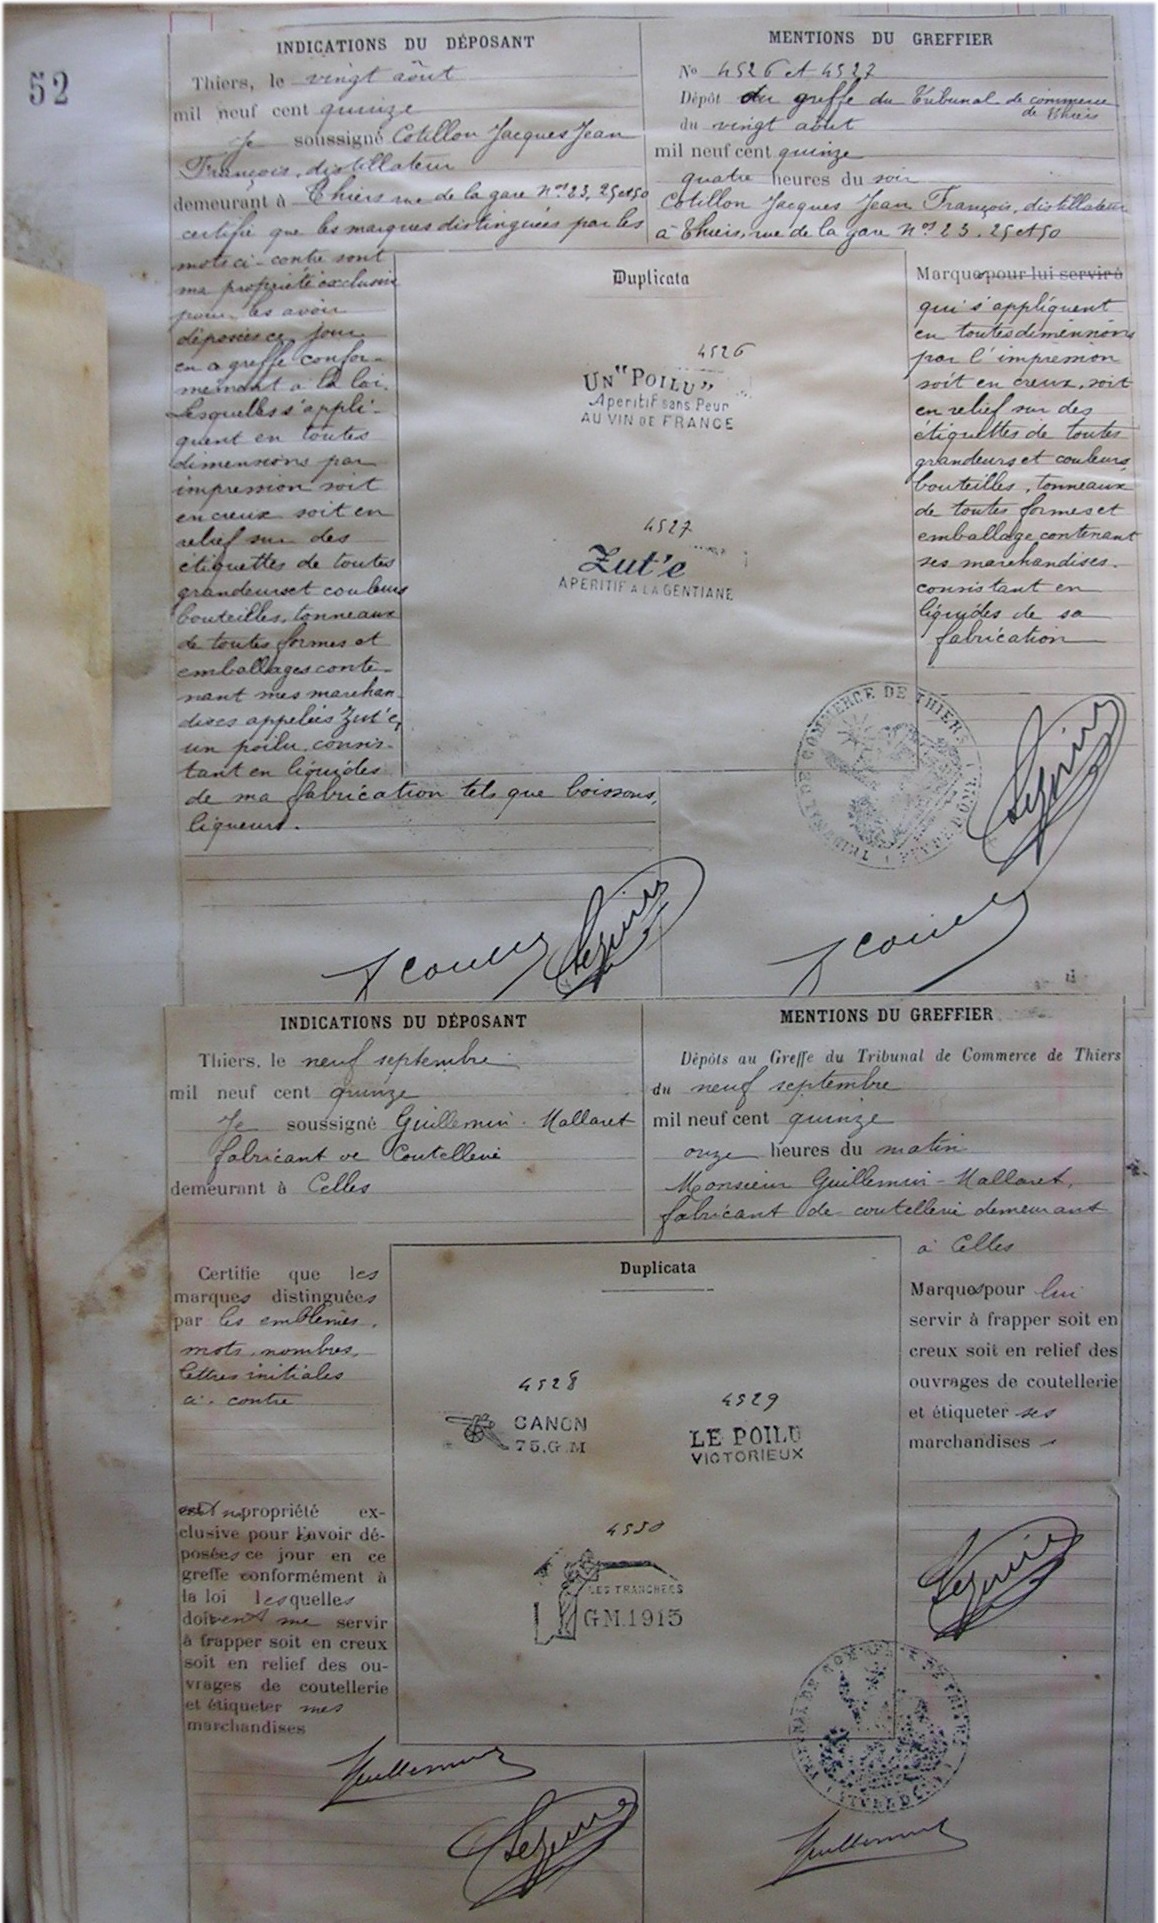 52
INDICATIONS DU DÉPOSANT
Thiers, le vingt août
mil neuf cent quinze
Je soussigné Cotillon Jacques Jean
François, distillateur
demeurant à Thiers rue de la gare Nos 23, 25 et 50
certifie que les marques distinguées par les
mots ci-contre sont
ma propriété exclusive
pour les avoir
déposées ce jour
en ce greffe confor-
mément à la loi.
Lesquelles s'appli-
quent en toutes
dimensions par
impression soit
en creux soit en
relief sur des
étiquettes de toutes
grandeurs et couleurs
bouteilles, tonneaux
de toutes formes et
emballages conte-
nant mes marchan-
dises appelées Zut'e,
un poilu, consis-
tant en liquides
de ma fabrication tels que boissons,
liqueurs.
MENTIONS DU GREFFIER
No 4526 et 4527
Dépôt au greffe du Tribunal de commerce
de Thiers
du vingt août
mil neuf cent quinze
quatre heures du soir
Cotillon Jacques Jean François, distillateur
à Thiers, rue de la gare Nos 23, 25 et 50
Duplicata
4526
UN "POILU"
Aperitif sans Peur
AU VIN DE FRANCE
4527
Zut'e
APERITIF A LA GENTIANE
Marques pour lui servir à
qui s'appliquent
en toutes dimensions
par l'impression
soit en creux, soit
en relief sur des
étiquettes de toutes
grandeurs et couleurs,
bouteilles, tonneaux
de toutes formes et
emballage contenant
ses marchandises
consistant en
liquides de sa
fabrication
TRIBUNAL DE COMMERCE DE THIERS
INDICATIONS DU DÉPOSANT
Thiers, le neuf septembre
mil neuf cent quinze
Je soussigné Guillemin-Mallaret
fabricant de Coutellerie
demeurant à Celles
MENTIONS DU GREFFIER
Dépôts au Greffe du Tribunal de Commerce de Thiers
du neuf septembre
mil neuf cent quinze
onze heures du matin
Monsieur Guillemin-Mallaret,
fabricant de coutellerie demeurant
à Celles
Certifie que les
marques distinguées
par les emblèmes,
mots, nombres,
lettres initiales
ci-contre
est ma propriété ex-
clusive pour l'avoir dé-
posées ce jour en ce
greffe conformément à
la loi lesquelles
doivent me servir
à frapper soit en creux
soit en relief des ou-
vrages de coutellerie
et étiqueter mes
marchandises
Duplicata
4528
CANON
75.G.M
4529
LE POILU
VICTORIEUX
4530
LES TRANCHEES
G.M.1915
Marques pour lui
servir à frapper soit en
creux soit en relief des
ouvrages de coutellerie
et étiqueter ses
marchandises
TRIBUNAL DE COMMERCE DE THIERS
Guillemin
Guillemin